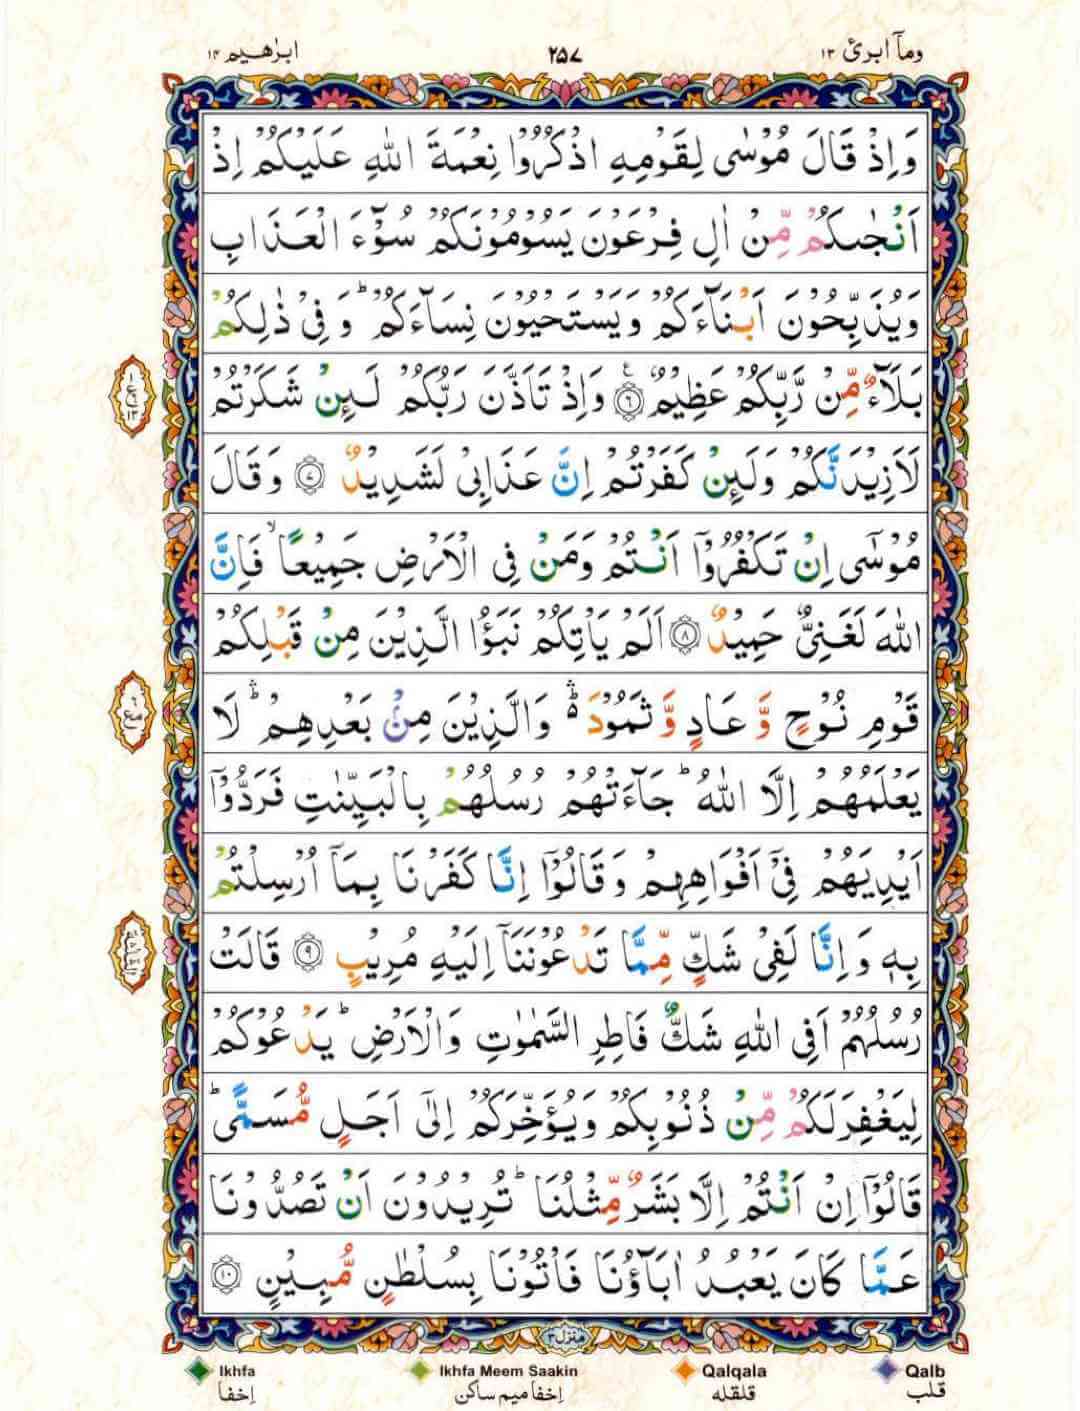 ابرٰهيم ١٤ ٢٥٧ ومآ ابرئ ١٣
وَاِذْ قَالَ مُوْسٰى لِقَوْمِهِ اذْكُرُوْا نِعْمَةَ اللّٰهِ عَلَيْكُمْ اِذْ
اَنْجٰىكُمْ مِّنْ اٰلِ فِرْعَوْنَ يَسُوْمُوْنَكُمْ سُوْٓءَ الْعَذَابِ
وَيُذَبِّحُوْنَ اَبْنَآءَكُمْ وَيَسْتَحْيُوْنَ نِسَآءَكُمْ ؕ وَفِيْ ذٰلِكُمْ
بَلَآءٌ مِّنْ رَّبِّكُمْ عَظِيْمٌ ۝٦ وَاِذْ تَاَذَّنَ رَبُّكُمْ لَئِنْ شَكَرْتُمْ
لَاَزِيْدَنَّكُمْ وَلَئِنْ كَفَرْتُمْ اِنَّ عَذَابِيْ لَشَدِيْدٌ ۝٧ وَقَالَ
مُوْسٰٓى اِنْ تَكْفُرُوْٓا اَنْتُمْ وَمَنْ فِي الْاَرْضِ جَمِيْعًا ۙ فَاِنَّ
اللّٰهَ لَغَنِيٌّ حَمِيْدٌ ۝٨ اَلَمْ يَاْتِكُمْ نَبَؤُا الَّذِيْنَ مِنْ قَبْلِكُمْ
قَوْمِ نُوْحٍ وَّ عَادٍ وَّ ثَمُوْدَ ۛؕ وَالَّذِيْنَ مِنْۢ بَعْدِهِمْ ۛؕ لَا
يَعْلَمُهُمْ اِلَّا اللّٰهُ ؕ جَآءَتْهُمْ رُسُلُهُمْ بِالْبَيِّنٰتِ فَرَدُّوْٓا
اَيْدِيَهُمْ فِيْٓ اَفْوَاهِهِمْ وَقَالُوْٓا اِنَّا كَفَرْنَا بِمَآ اُرْسِلْتُمْ
بِهٖ وَاِنَّا لَفِيْ شَكٍّ مِّمَّا تَدْعُوْنَنَآ اِلَيْهِ مُرِيْبٍ ۝٩ قَالَتْ
رُسُلُهُمْ اَفِي اللّٰهِ شَكٌّ فَاطِرِ السَّمٰوٰتِ وَالْاَرْضِ ؕ يَدْعُوْكُمْ
لِيَغْفِرَ لَكُمْ مِّنْ ذُنُوْبِكُمْ وَيُؤَخِّرَكُمْ اِلٰٓى اَجَلٍ مُّسَمًّى ؕ
قَالُوْٓا اِنْ اَنْتُمْ اِلَّا بَشَرٌ مِّثْلُنَا ؕ تُرِيْدُوْنَ اَنْ تَصُدُّوْنَا
عَمَّا كَانَ يَعْبُدُ اٰبَآؤُنَا فَاْتُوْنَا بِسُلْطٰنٍ مُّبِيْنٍ ۝١٠
منزل ٣
Ikhfa Ikhfa Meem Saakin Qalqala Qalb
اِخفا اِخفا ميم ساكن قلقله قلب